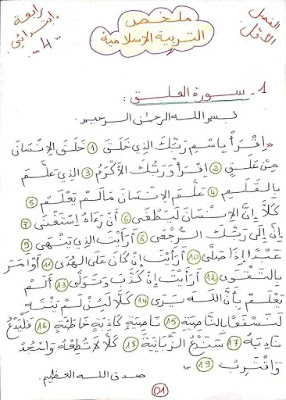 الفصل الأول
ملخص
التربية الإسلامية
رابعة
إبتدائي
-4-
1. سورة العلق :
بسم الله الرحمن الرحيم
«إِقْرَأْ بِاسْمِ رَبِّكَ الَّذِي خَلَقَ (1) خَلَقَ الْإِنْسَانَ
مِنْ عَلَقٍ (2) إِقْرَأْ وَرَبُّكَ الْأَكْرَمُ (3) الذِي عَلَّمَ
بِالْقَلَمِ (4) عَلَّمَ الْإِنْسَانَ مَا لَمْ يَعْلَمْ (5)
كَلَّا إِنَّ الْإِنْسَانَ لَيَطْغَى (6) أَنْ رَءَاهُ اسْتَغْنَى (7)
إِنَّ إِلَى رَبِّكَ الرُّجْعَى (8) أَرَأَيْتَ الذِي يَنْهَى (9)
عَبْدًا إِذَا صَلَّى (10) أَرَأَيْتَ إِنْ كَانَ عَلَى الْهُدَى (11) أَوْ أَمَرَ
بِالتَّقْوَى (12) أَرَأَيْتَ إِنْ كَذَّبَ وَتَوَلَّى (13) أَلَمْ
يَعْلَمْ بِأَنَّ اللَّهَ يَرَى (14) كَلَّا لَئِنْ لَمْ يَنْتَهِ
لَنَسْفَعًا بِالنَّاصِيَةِ (15) نَاصِيَةٍ كَاذِبَةٍ خَاطِئَةٍ (16) فَلْيَدْعُ
نَادِيَهُ (17) سَنَدْعُ الزَّبَانِيَةَ (18) كَلَّا لَا تُطِعْهُ وَاسْجُدْ
وَاقْتَرِبْ (19) »
صدق الله العظيم.
01